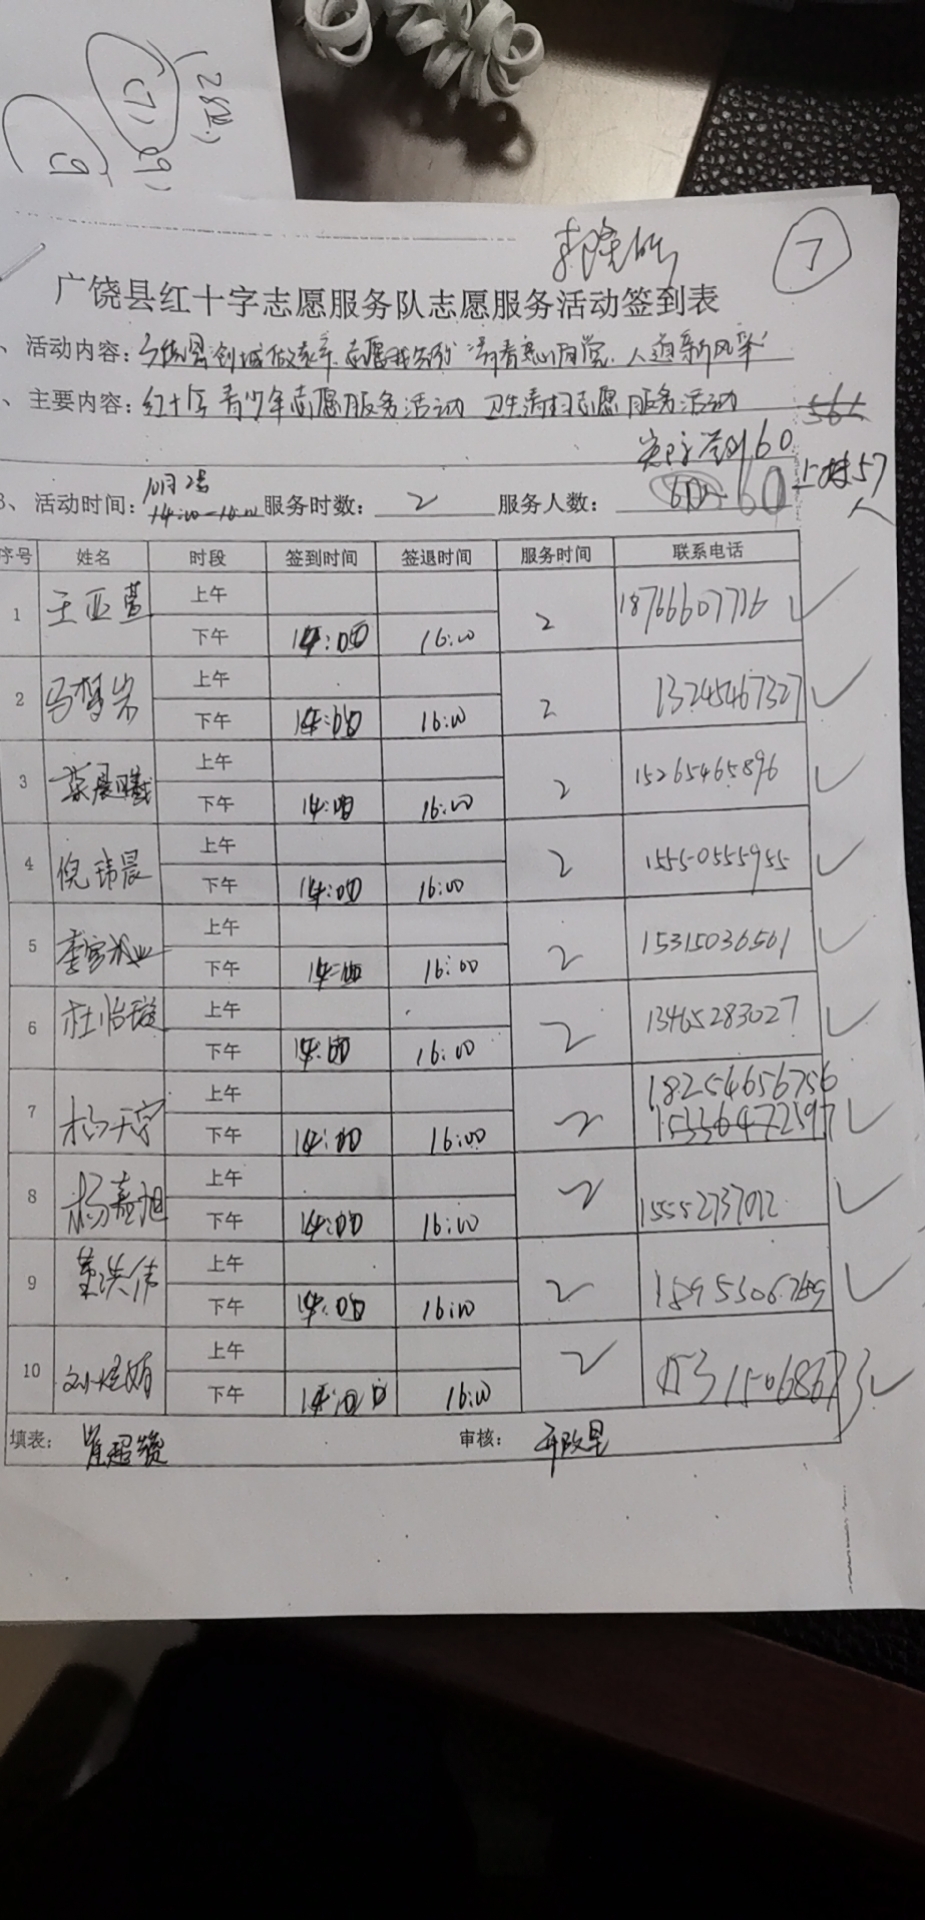 (28业)
(7)
(9)
(9
7
广饶县红十字志愿服务队志愿服务活动签到表
、活动内容：广饶县创城做表率 志愿我先行 人道新风采
、主要内容：红十字青少年志愿服务活动 卫生清扫志愿服务活动 566
实际签到60
3、活动时间：10月2号 14:00-16:00 服务时数：2 服务人数：60 上传57人
序号 姓名 时段 签到时间 签退时间 服务时间 联系电话
1 王亚萱 上午 2 18766607716 ✓
下午 14:00 16:00
2 马梦岩 上午 2 13245467327 ✓
下午 14:00 16:00
3 晨曦 上午 2 15265465896 ✓
下午 14:00 16:00
4 倪玮晨 上午 2 15550555955 ✓
下午 14:00 16:00
5 上午 2 15315036561 ✓
下午 14:00 16:00
6 杜怡璇 上午 2 13465283027 ✓
下午 14:00 16:00
7 杨天宇 上午 2 18254656756
下午 14:00 16:00 15336472597 ✓
8 杨嘉旭 上午 2 15552737012 ✓
下午 14:00 16:00
9 董洪伟 上午 2 ✓
下午 14:00 16:00
10 上午 2 15315068673 ✓
下午 14:00 16:00
填表： 审核：